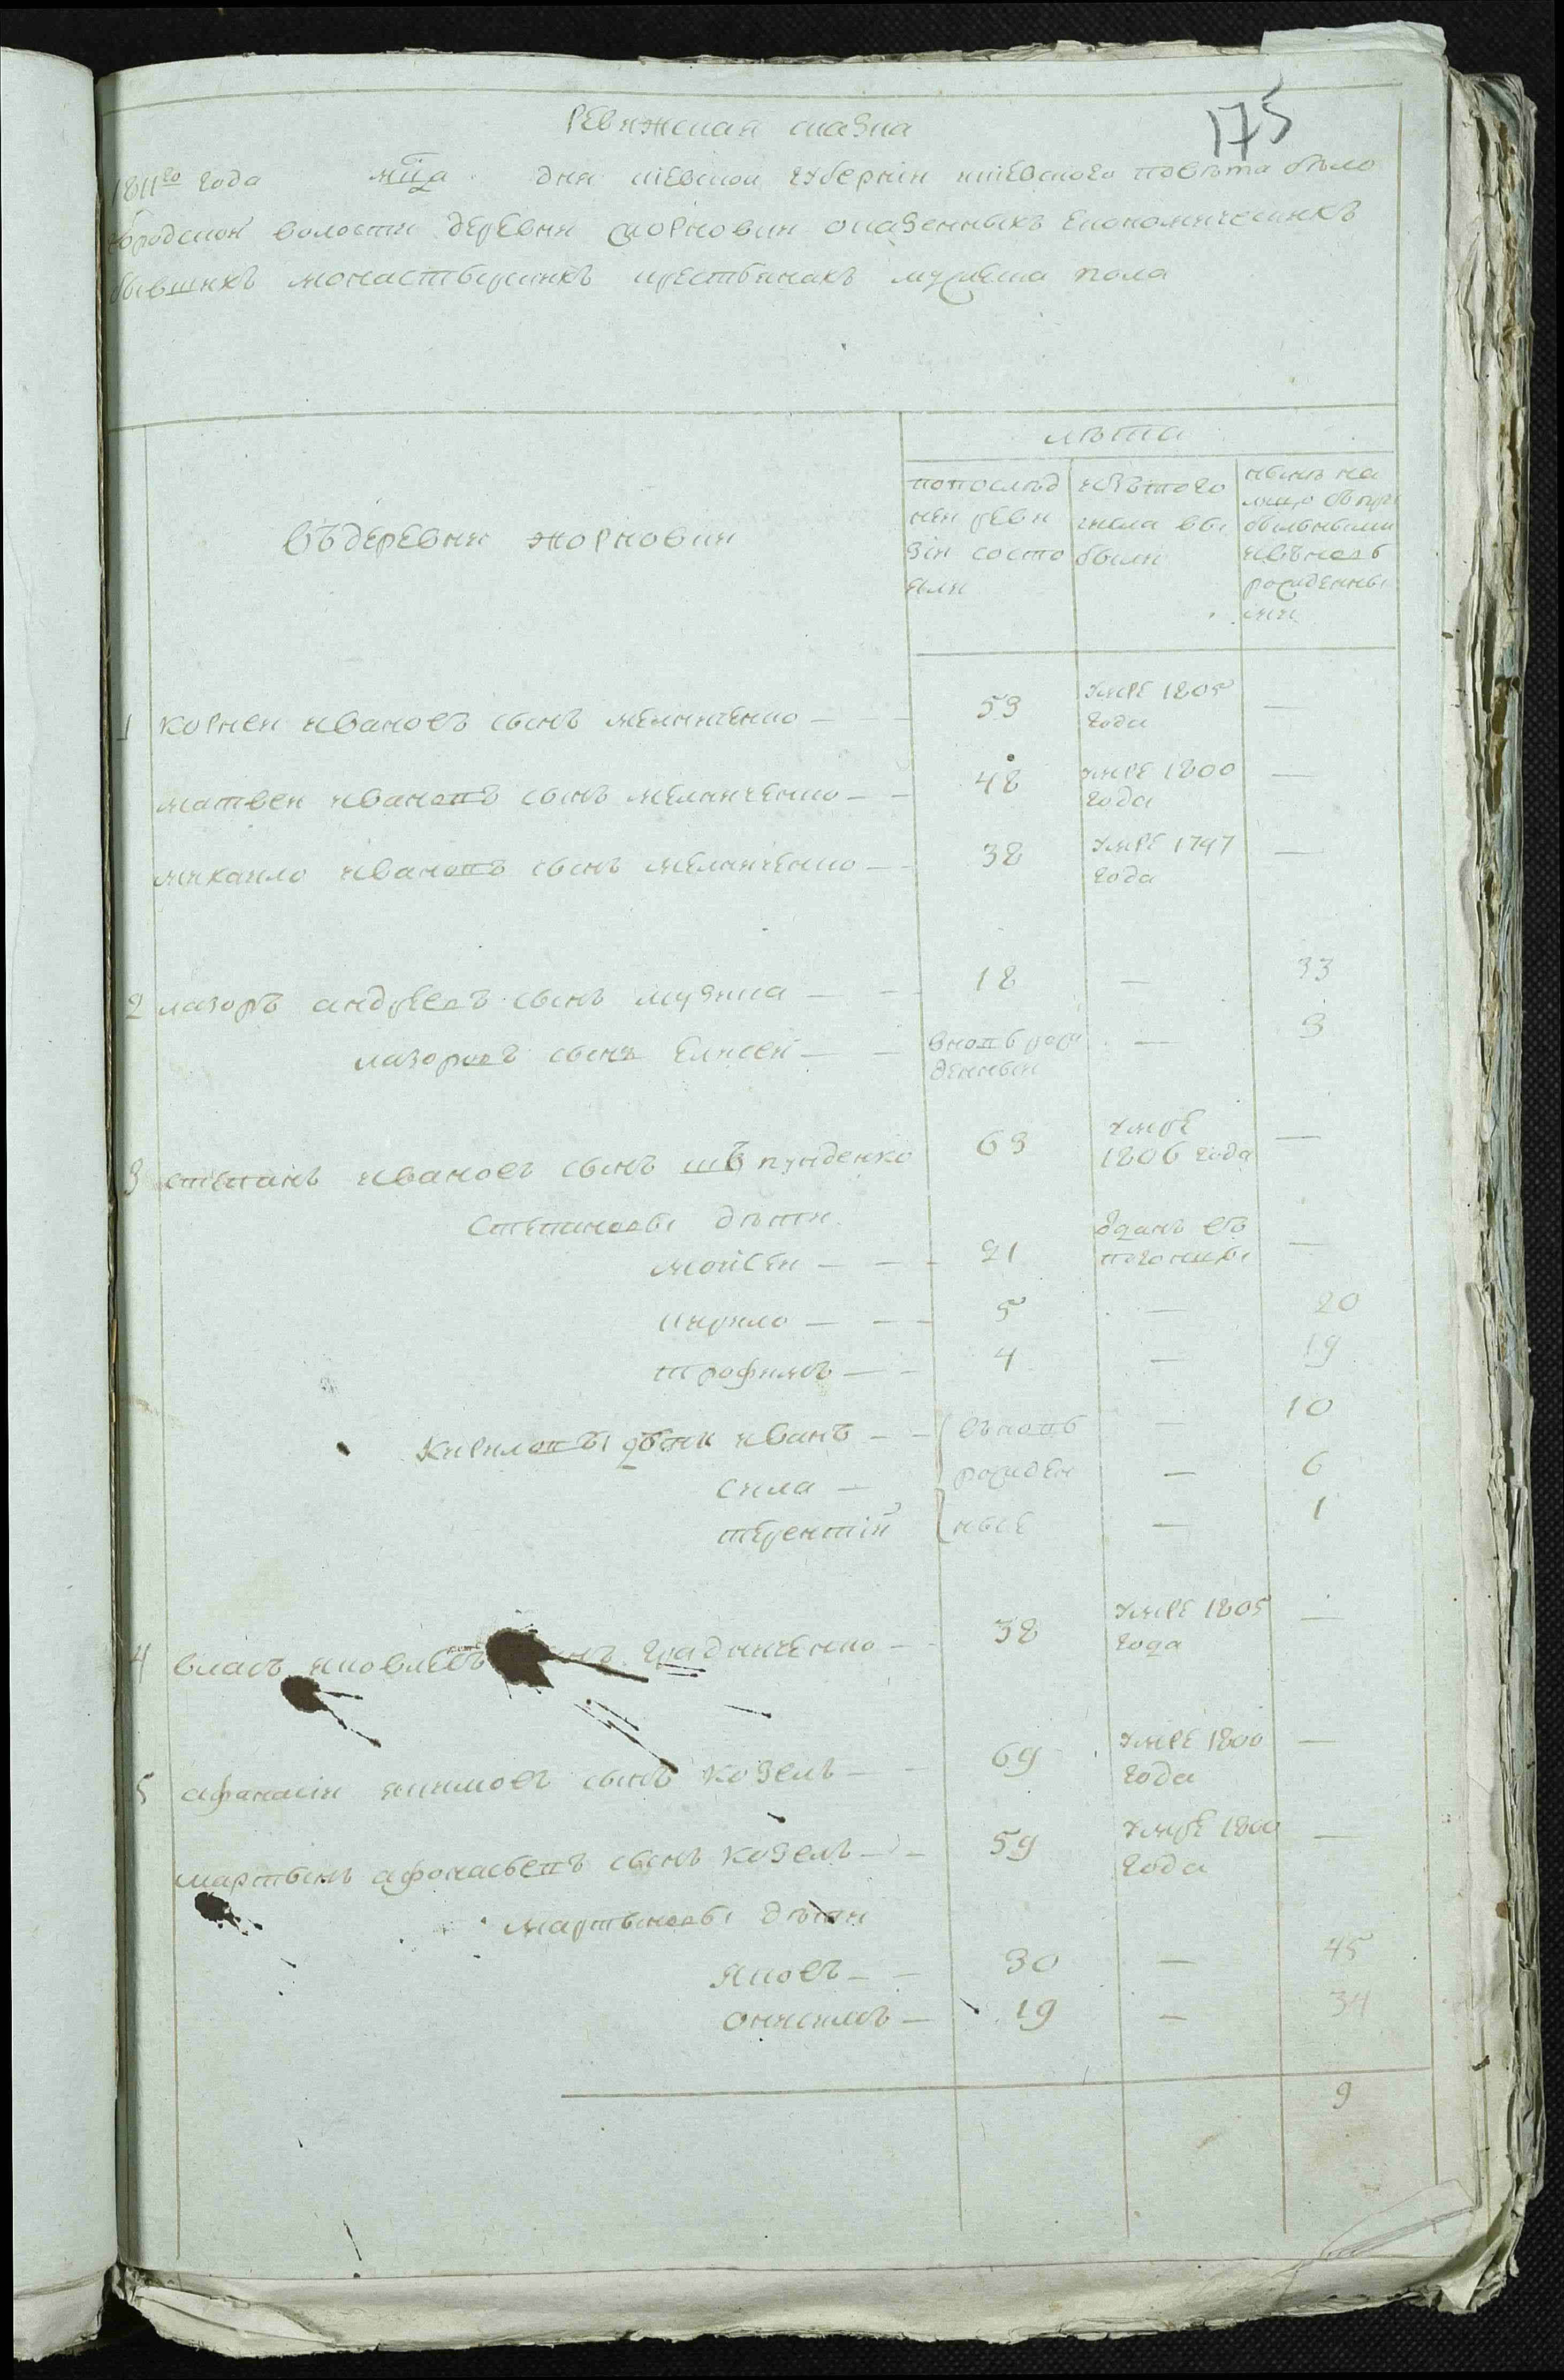 175
Ревижская сказка
1811го года мца дня киевской губернїи киевского повѣта бѣло
бродской волости деревни жорновки оказенныхъ економическихъ
бывшихъ монастырскихъ крестьянахъ мужеска пола
въдеревни жорновки
лѣта
попослѣд
ней реви
зїи состо
яли
избътого
числа вы
были
нынѣ на
лицо съпри
былыми
ивъновь
рожденны
ми
1 корней ивановъ сынъ мелниченко — — 53 умре 1805 года —
матвей ивановъ сынъ мелниченко — — 48 умре 1800 года —
михаило ивановъ сынъ мелниченко — — 38 умре 1797 года —
2 лазоръ андреевъ сынъ — — 18 — 33
лазоровъ сынъ елисей — — вновь рожденный — 3
3 степанъ ивановъ сынъ 63 умре 1806 года —
степановы дѣти
мойсей — — — 21 —
кирило — — — 5 — 20
трофимъ — — 4 — 19
кириловы дѣти иванъ — — въновь — 10
сила — рожден — 6
терентїй ные — 1
4 власъ яковлевъ градниченко — — 38 умре 1805 года —
5 афанасїй якимовъ сынъ козелъ — — 69 умре 1800 года —
мартынъ афонасьевъ сынъ козелъ — — 59 умре 1800 года —
мартыновы дѣти
яковъ — — 30 — 45
онисимъ — 19 — 34
9